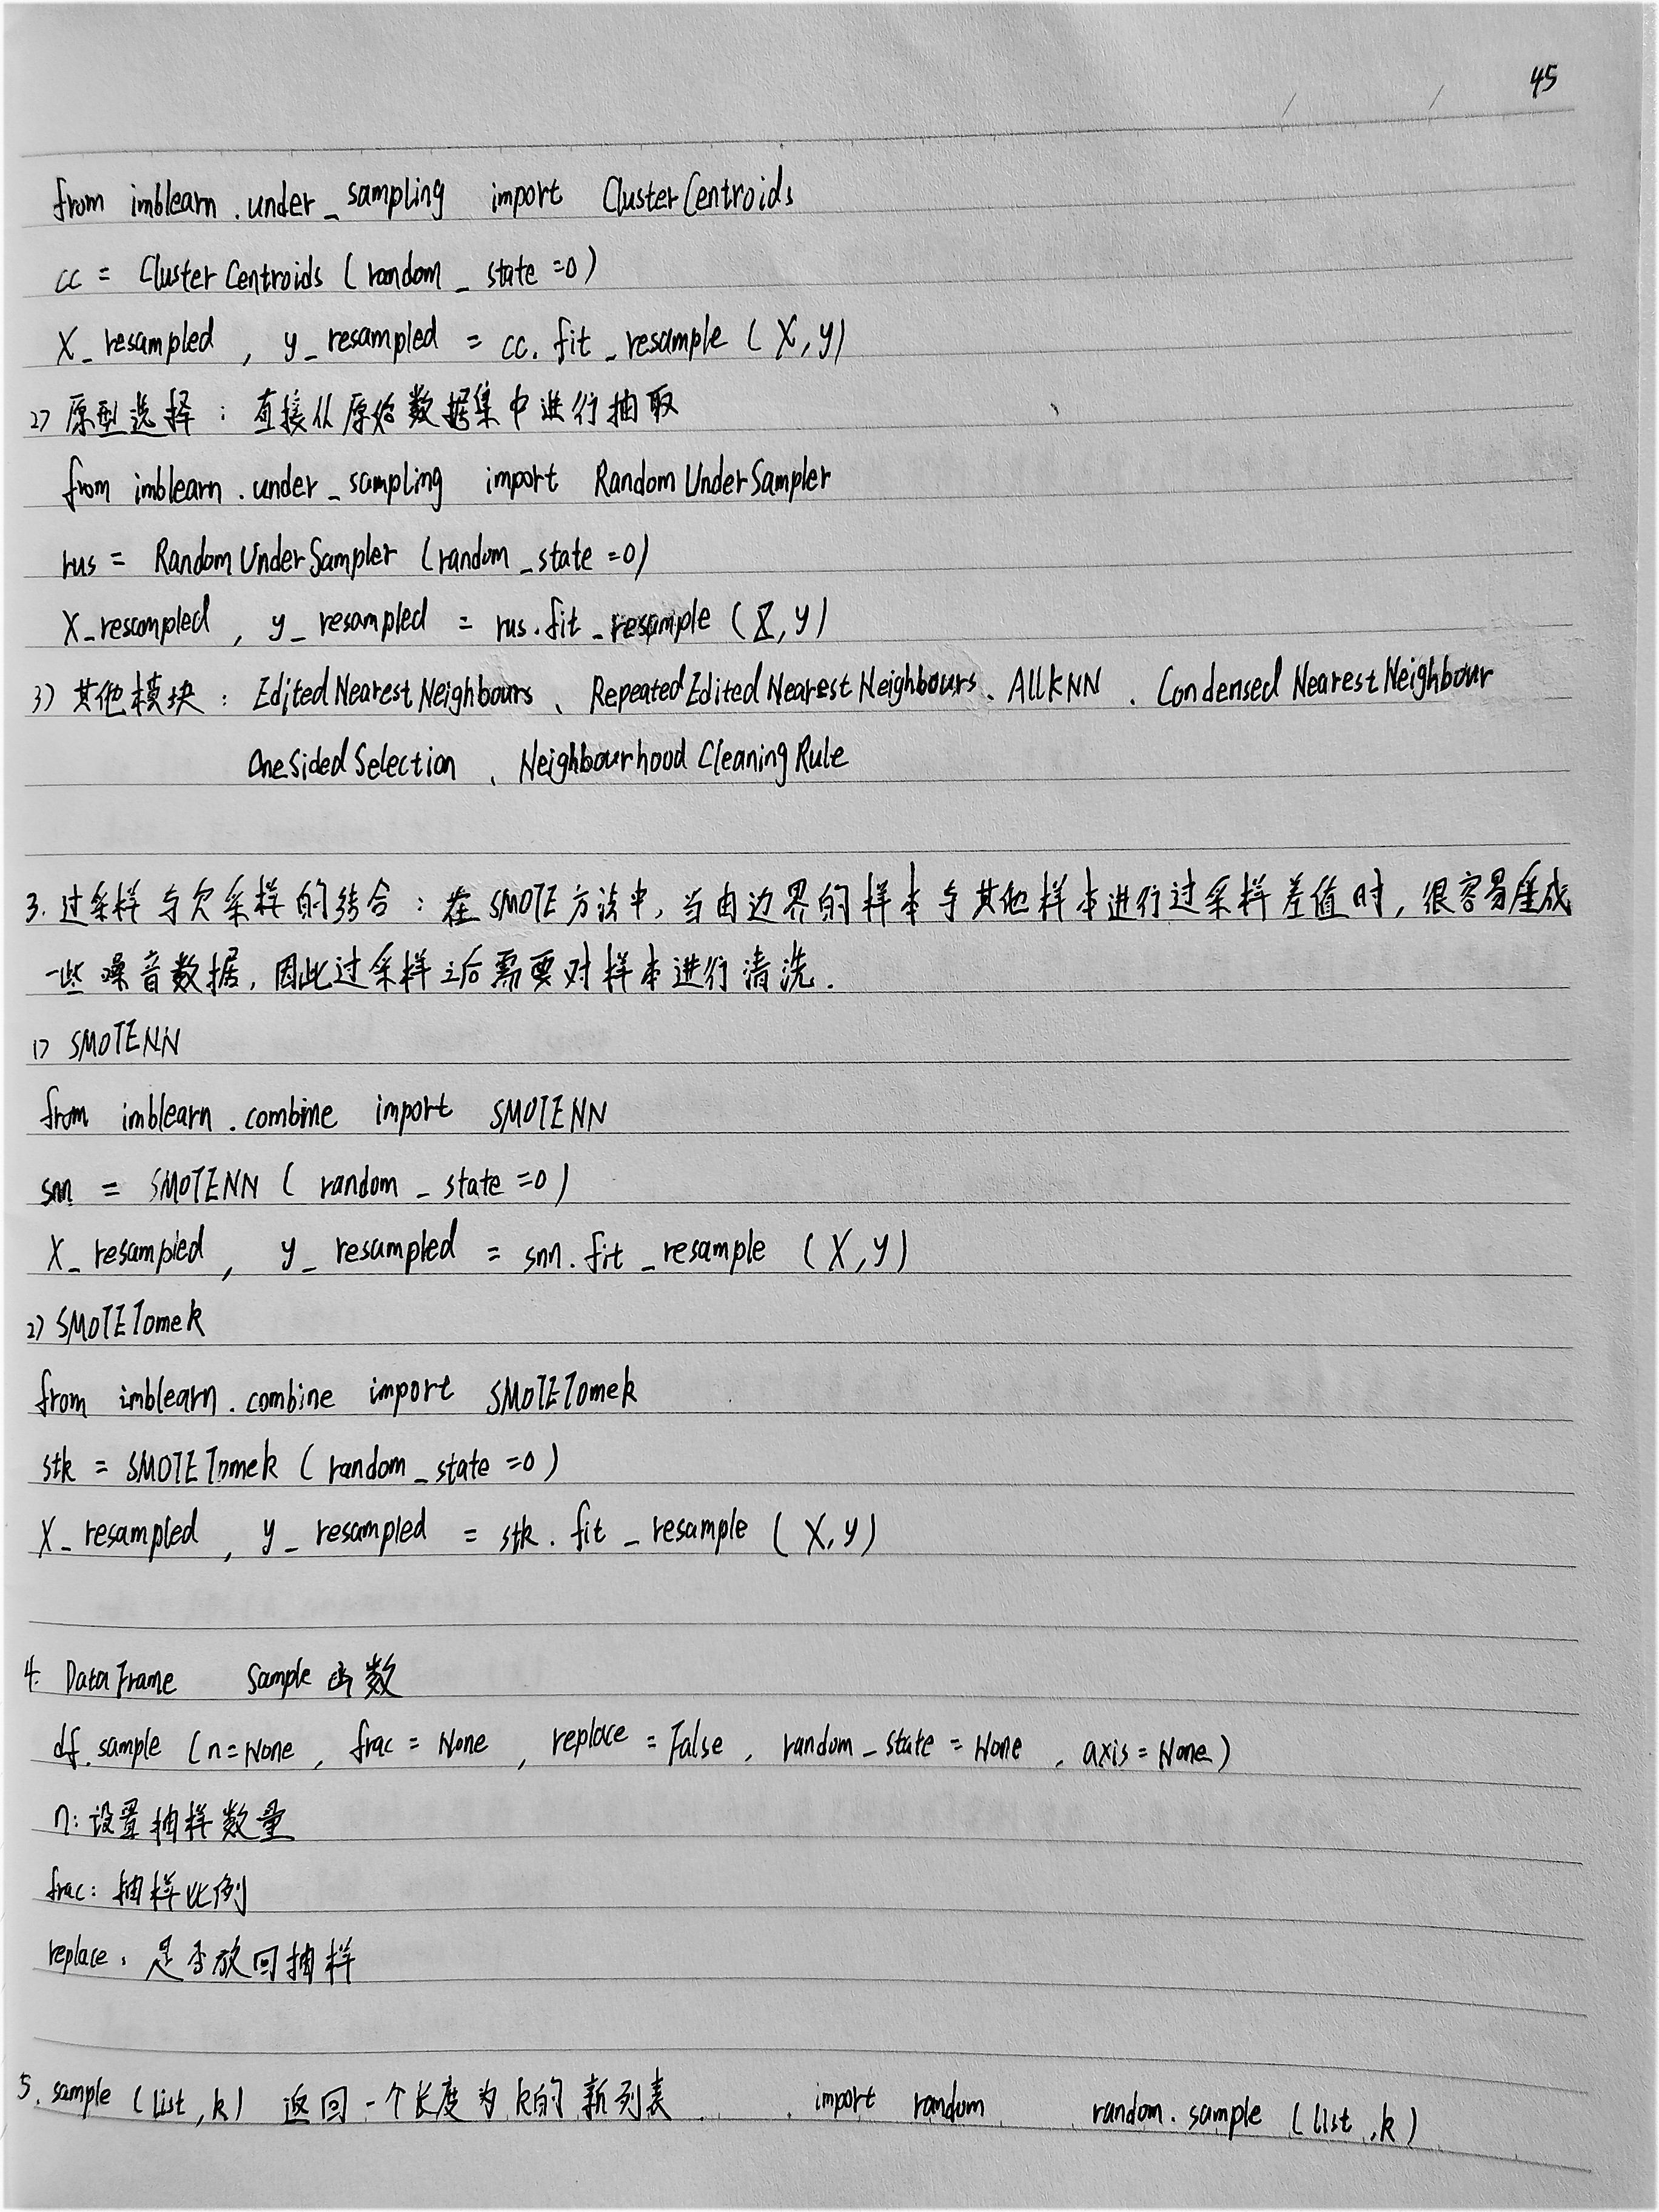 45
from imblearn.under_sampling import ClusterCentroids
cc = ClusterCentroids (random_state=0)
X_resampled , y_resampled = cc.fit_resample (X,y)
2) 原型选择：直接从原始数据集中进行抽取
from imblearn.under_sampling import RandomUnderSampler
rus = RandomUnderSampler (random_state=0)
X_resampled , y_resampled = rus.fit_resample (X,y)
3) 其他模块：EditedNearestNeighbours、RepeatedEditedNearestNeighbours、AllKNN、CondensedNearestNeighbour
OneSidedSelection、NeighbourhoodCleaningRule
3. 过采样与欠采样的结合：在SMOTE方法中，当由边界的样本与其他样本进行过采样差值时，很容易生成
一些噪音数据，因此过采样之后需要对样本进行清洗.
1) SMOTENN
from imblearn.combine import SMOTENN
snn = SMOTENN (random_state=0)
X_resampled , y_resampled = snn.fit_resample (X,y)
2) SMOTETomek
from imblearn.combine import SMOTETomek
stk = SMOTETomek (random_state=0)
X_resampled , y_resampled = stk.fit_resample (X,y)
4. DataFrame Sample函数
df.sample (n=None , frac=None , replace=False , random_state=None , axis=None)
n: 设置抽样数量
frac: 抽样比例
replace: 是否放回抽样
5. sample (list,k) 返回一个长度为k的新列表 import random random.sample (list,k)